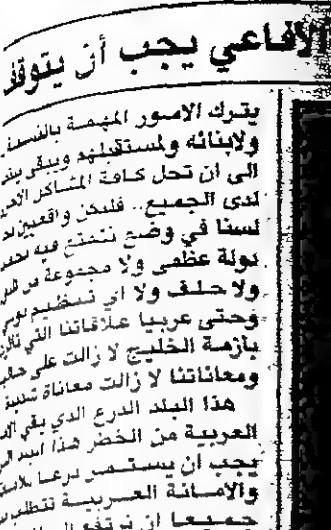 الأفاعي يجب أن يتوقف
يترك الامور المهمة بالنسبة
ولابنائه ولمستقبلهم ويبقى
الى ان تحل كافة المشاكل
لدى الجميع.. فلنكن واقعيين
لسنا في وضع نتمتع فيه
دولة عظمى ولا مجموعة من
ولا حلف ولا اي تنظيم
وحتى عربيا علاقاتنا التي
بازمة الخليج لا زالت على
ومعاناتنا لا زالت معاناة شديدة
هذا البلد الدرع الذي بقي
العربية من الخطر هذا البلد
يجب ان يستمر درعا
والامانة العربية تتطلب
جميعا ان نرتفع